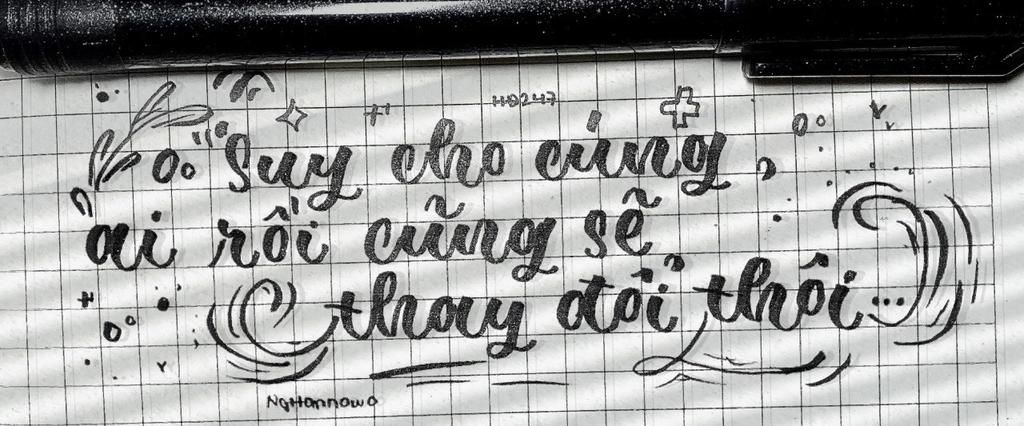 HĐ247
"Suy cho cùng,
ai rồi cũng sẽ
thay đổi thôi...
NgHannawa